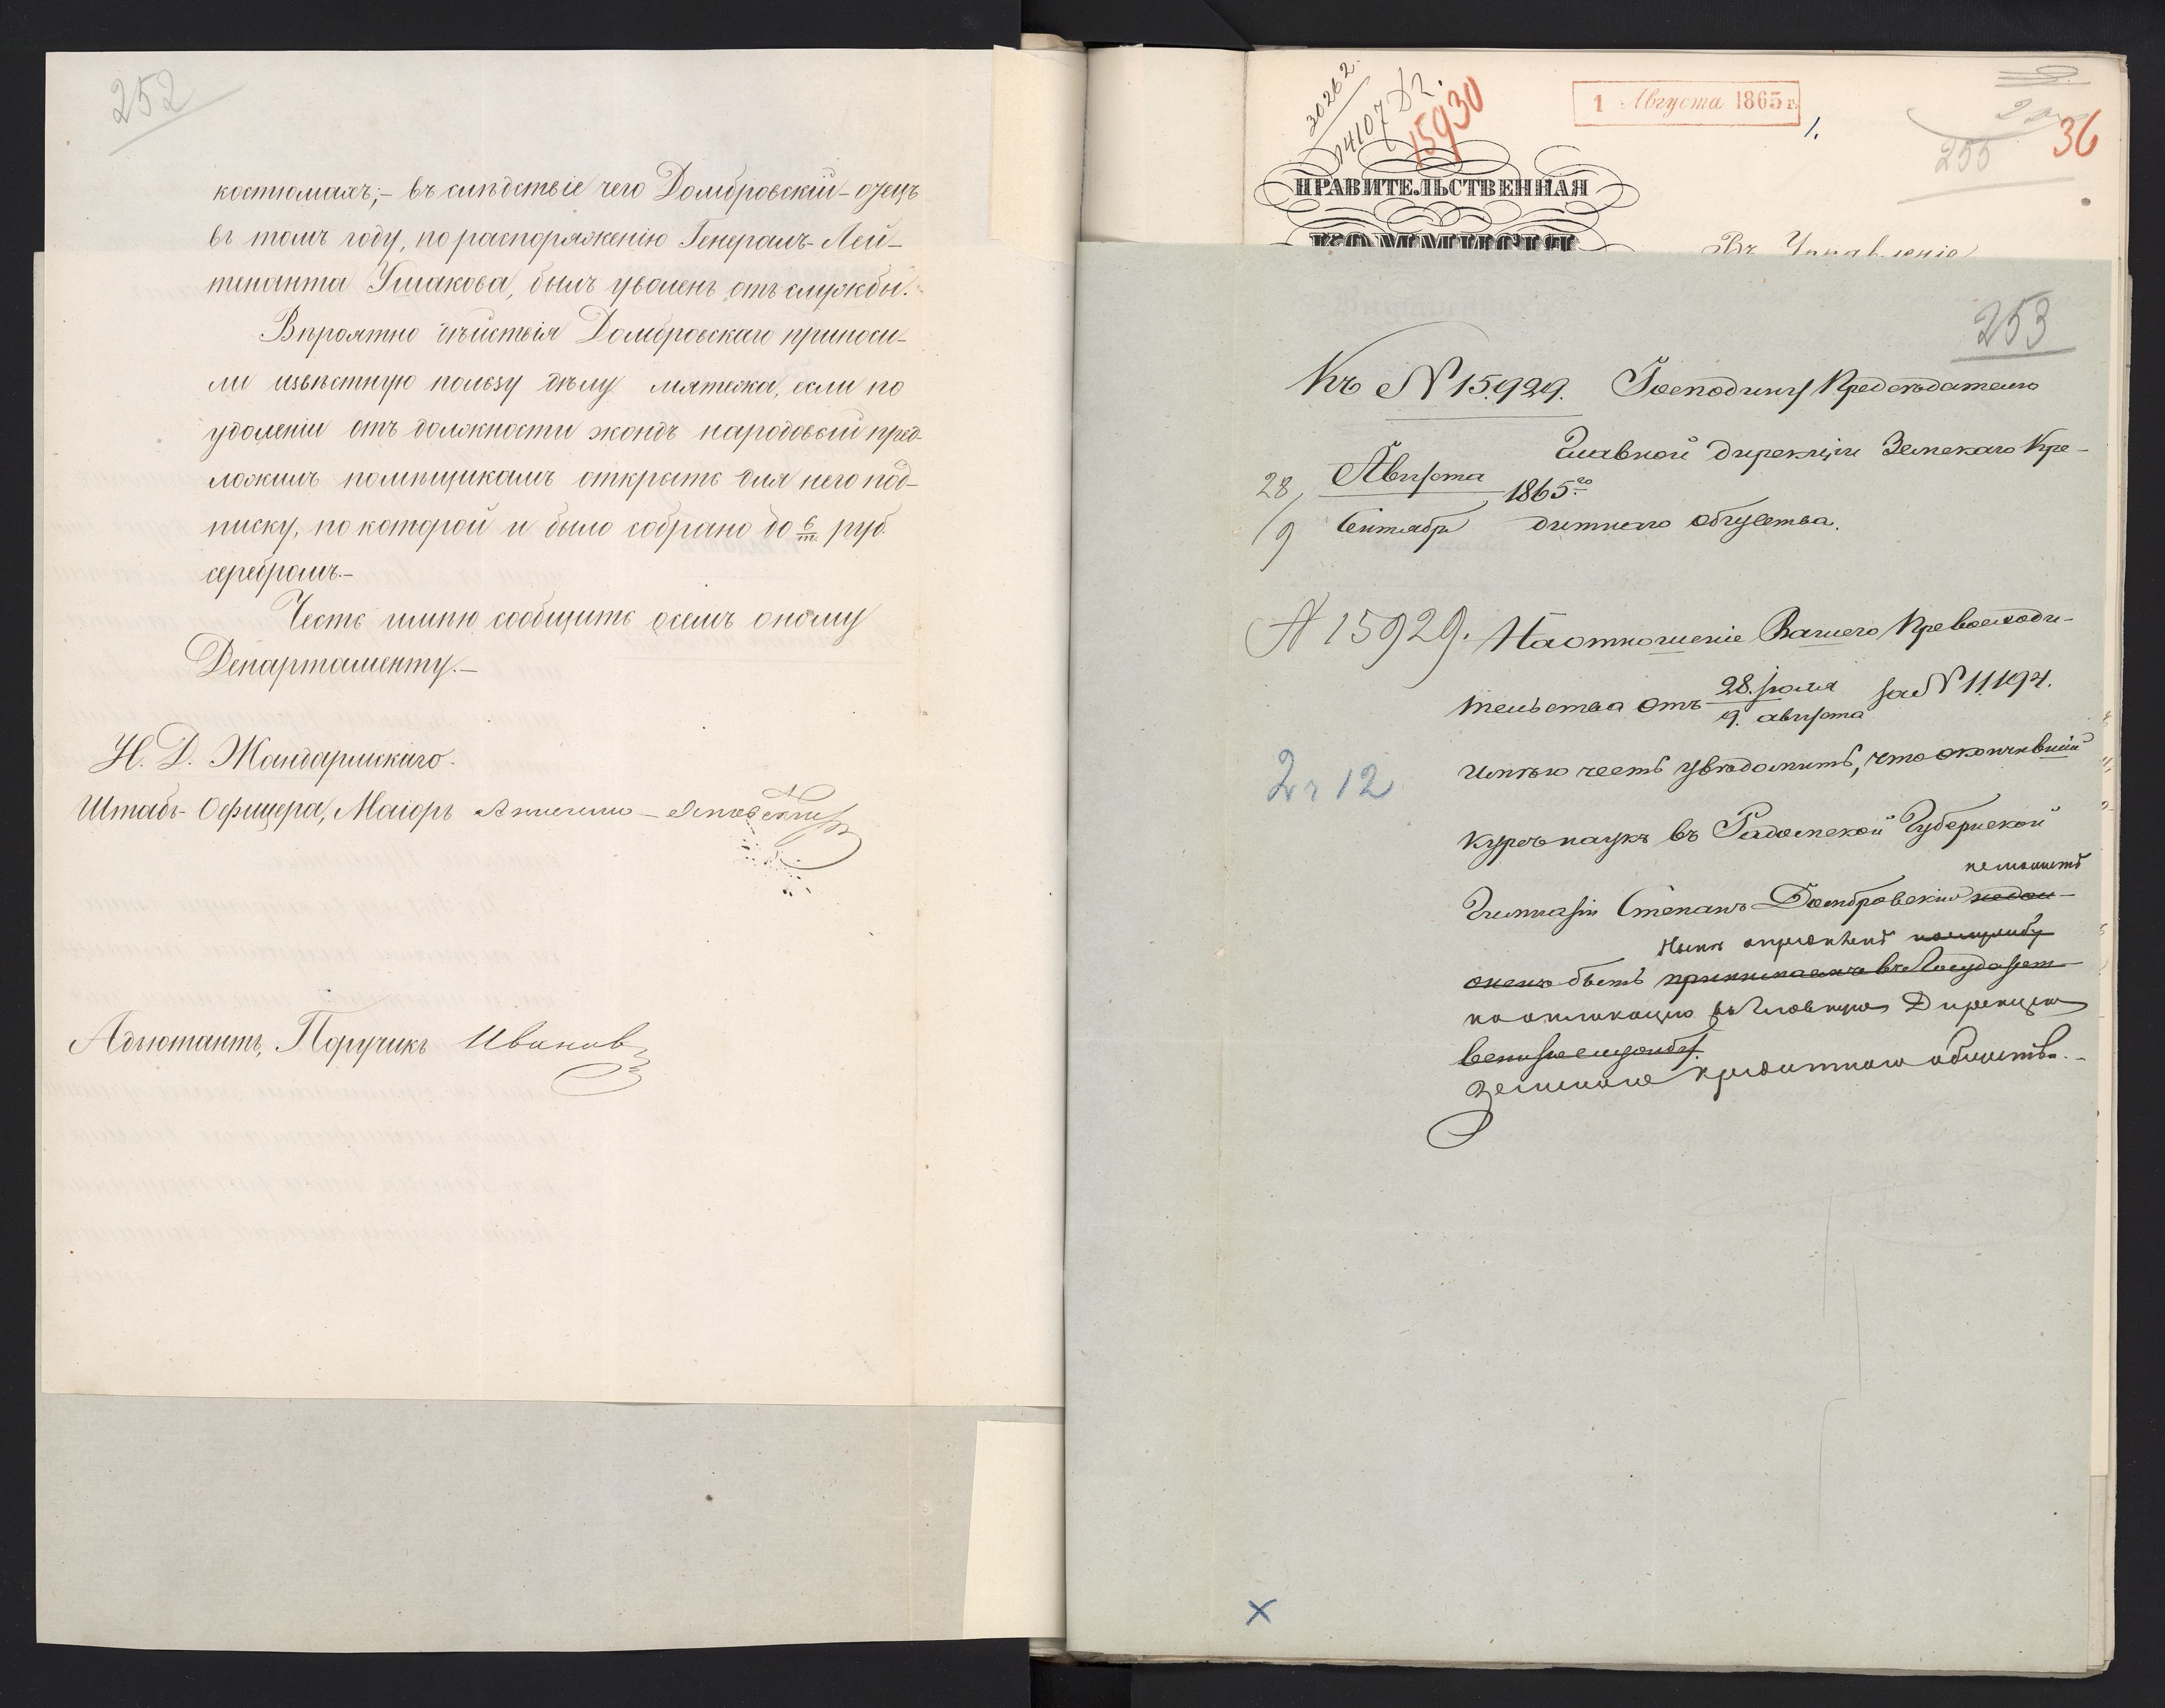 252
костюмахъ; - въ слѣдствіе чего Домбровскій - отецъ
въ томъ году, по распоряженію Генералъ-Лей-
тенанта Ушакова, былъ уволенъ отъ службы.
Вѣроятно дѣйствія Домбровскаго приноси-
ли извѣстную пользу дѣлу мятежа, если по
удаленіи отъ должности жондъ народовый пред-
ложилъ помѣщикамъ открыть для него под-
писку, по которой и было собрано до 6/т. руб.
серебромъ. -
Честь имѣю сообщить о семъ оному
Департаменту. -
Н. Д. Жандармскаго
Штабъ-Офицера, Маіоръ
Адъютантъ, Поручикъ Ивановъ
30262
14107
15930
1 Августа 1865 г.
1.
36
255
ПРАВИТЕЛЬСТВЕННАЯ
КОММИСІЯ
Въ Управленіе
253
Къ № 15.929. Господину Предсѣдателю
Главной Дирекціи Земскаго Кре-
28/9 Августа/Сентября 1865 го
дитнаго общества.
№ 15929. На отношеніе Вашего Превосходи-
тельства отъ 28 Іюля/9 августа за № 11194.
имѣю честь увѣдомить, что окончившій
2 12
курсъ наукъ въ Радомской Губернской
неможетъ
Гимназіи Степанъ Домбровскій недол-
ныне опредѣленъ
женъ быть принимаемъ въ Государст-
на апликацію въ Главную Дирекцію
венную службу.
Земскаго кредитнаго общества. -
х